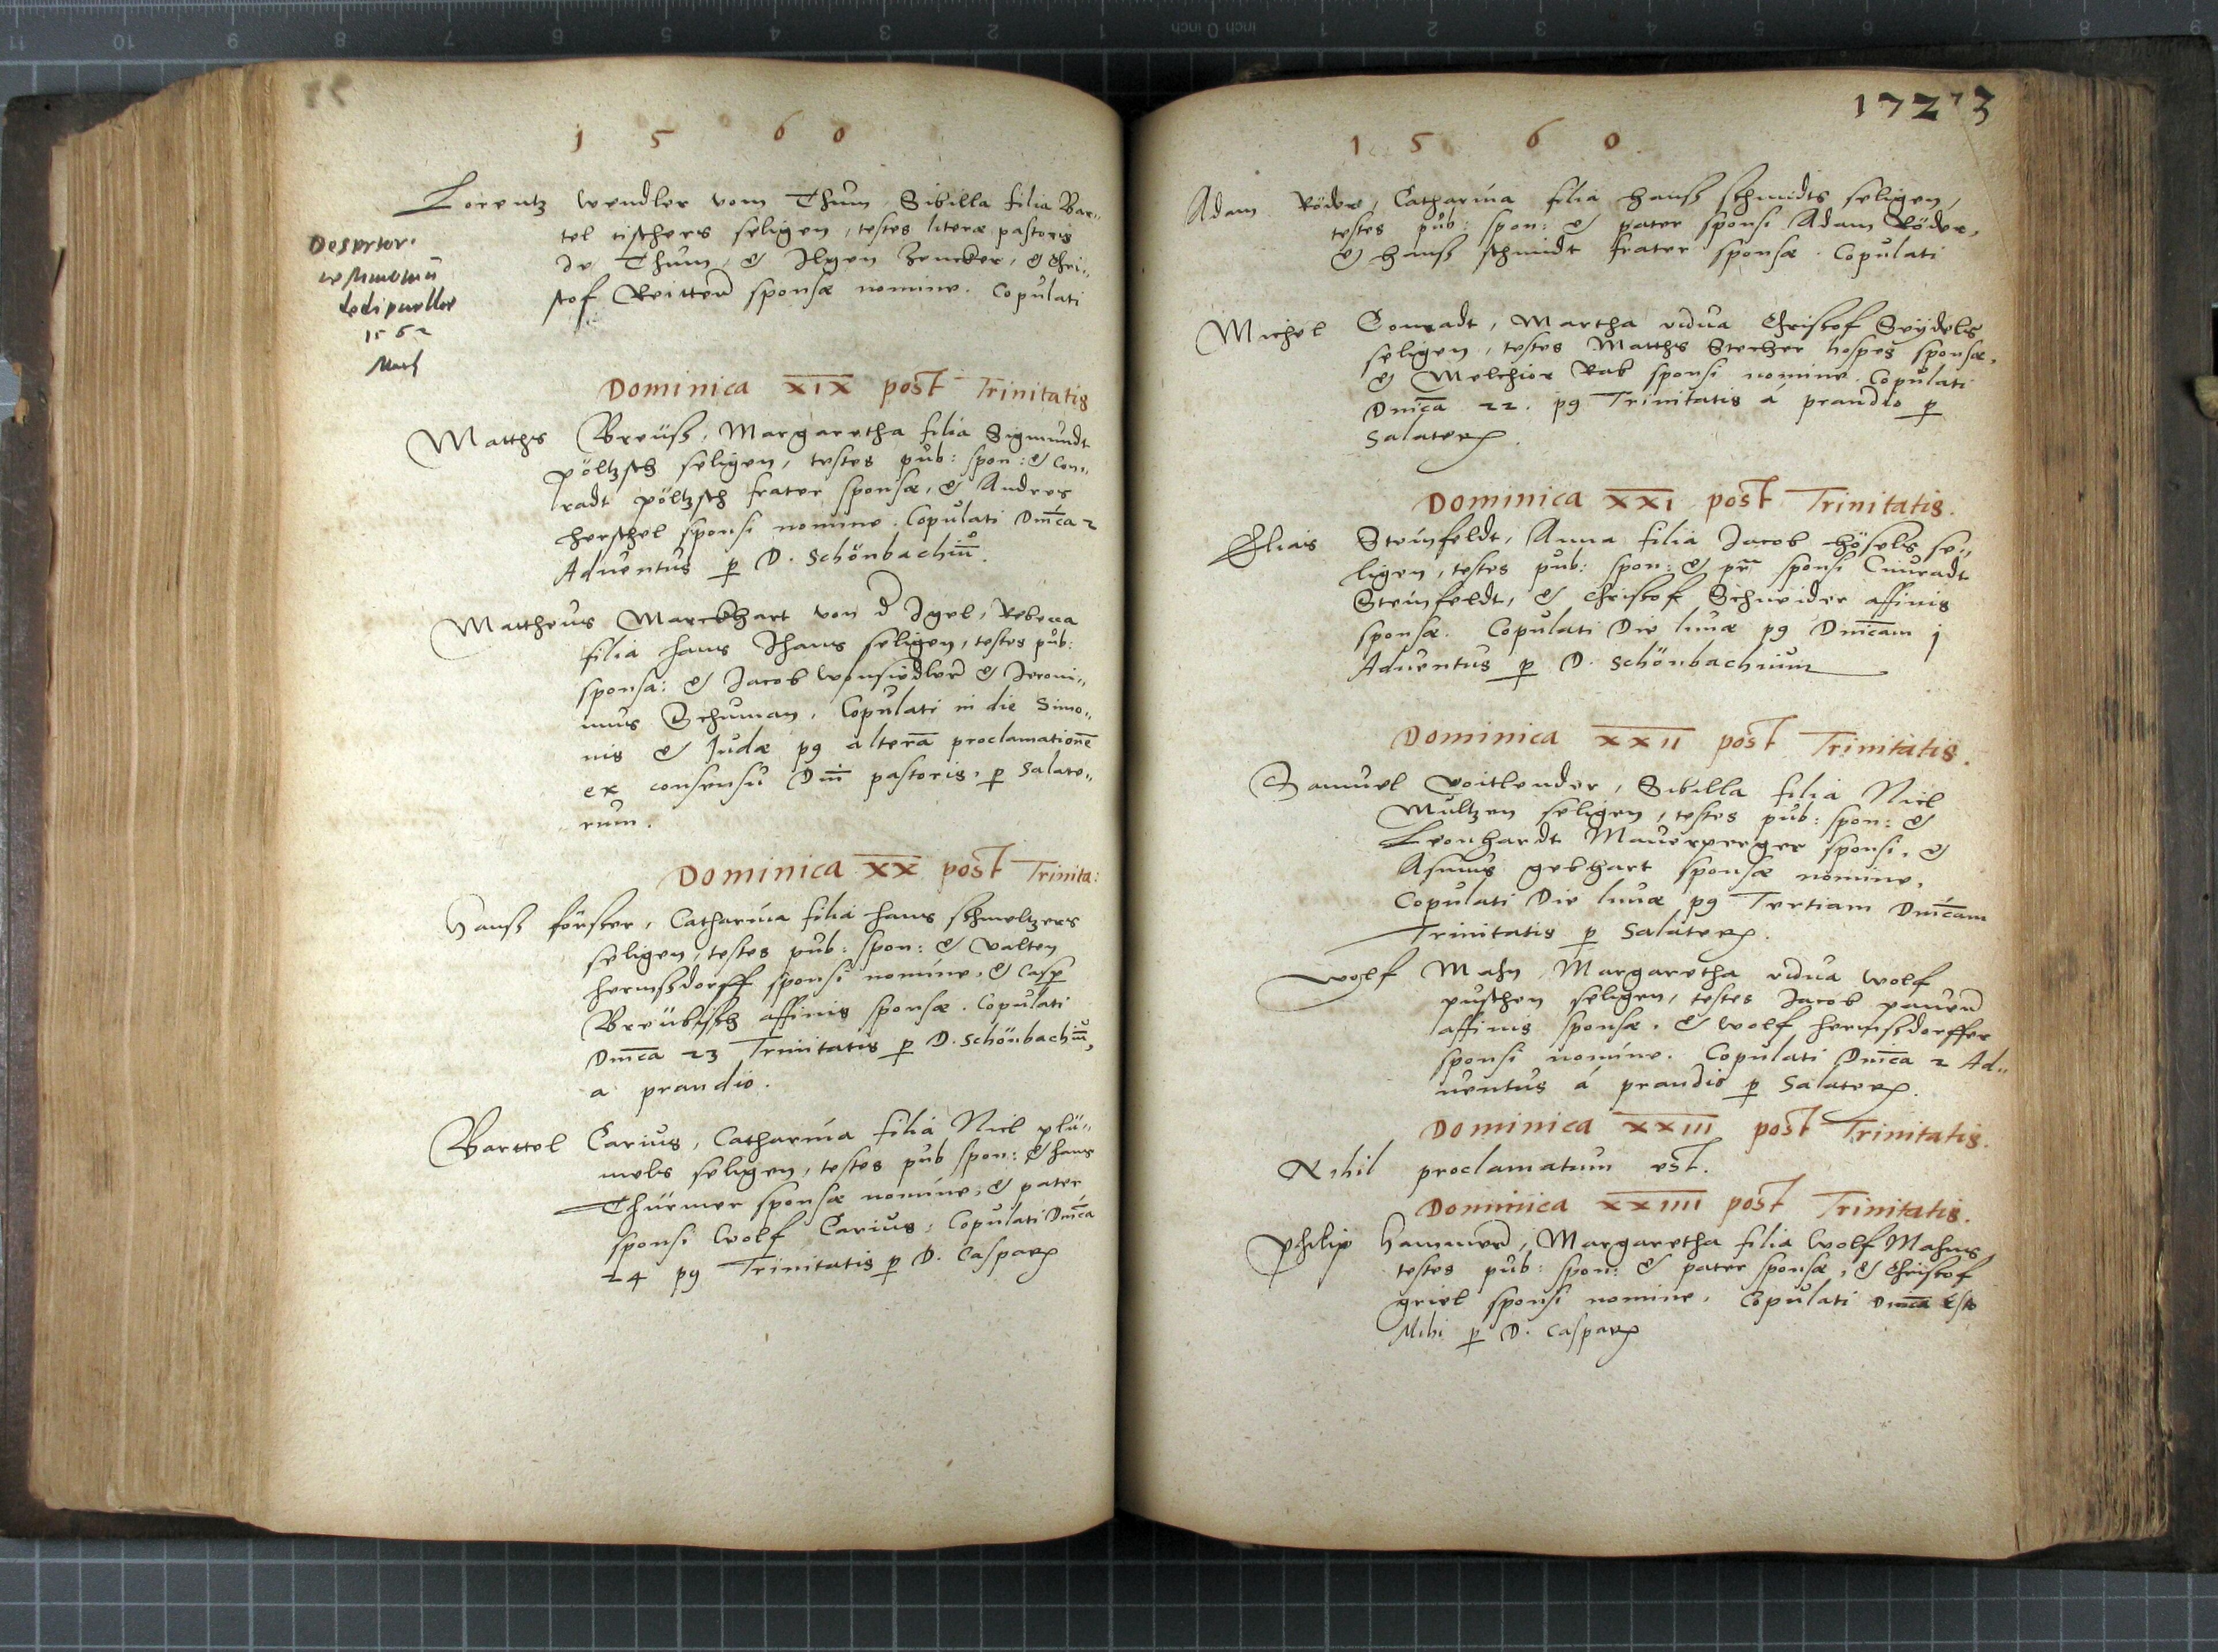 1560
Lorentz Wendler vom Thum, Sibilla filia Bar„
tel tischers seligen, testes literæ pastoris
de Thum, & Ilgen Zencker, & Chri„
stof Reitter sponsæ nomine. Copulati
Desertor.
testimoniū
dedi puellae
1562
Dominica XIX post Trinitatis
Matthes Breuß, Margaretha filia Sigmundt
pöltzsch seligen, testes pub: spon: & Con„
radt pöltzsch frater sponsæ, & Andres
Herschel sponsi nomine. Copulati Dn̄ica 2
Adventus p D. Schönbachiū.
Mattheus Marckhart von d Igel, Rebecca
filia hans Ihans seligen, testes pub:
sponsa: & Jacob Wonsiedler & Jeroni„
mus Schuman, Copulati in die Simo„
nis & Judæ p9 alterā proclamationē
ex consensu Dn̄i pastoris, p Salate„
rum.
Dominica XX post Trinita:
Hanß förster, Catharina filia hans schmeltzers
seligen, testes pub: spon: & Valten
hermßdorff sponsi nomine, & Casp
Breubisch affinis sponsæ. Copulati
Dn̄ica 23 Trinitatis p D. Schönbachiū,
a prandio.
Barttel Carius, Catharina filia Nicl plü„
mels seligen, testes pub spon: & hans
Thürmer sponsæ nomine, & pater
sponsi Wolf Carius, Copulati Dn̄ica
24 p9 Trinitatis p D. Caspar
172 73
1560
Adam Röder, Catharina filia hanß schmidts seligen,
testes pub: spon: & pater sponsi Adam Röder,
& hanß schmidt frater sponsæ. Copulati
Michel Conradt, Martha vidua Christof Seydels
seligen, testes Matthes Stecher hospes sponsæ,
& Melchior Rab sponsi nomine. Copulati
Dn̄ica 22. p9 Trinitatis á prandio p
Salater.
Dominica XXI post Trinitatis.
Elias Steinfeldt, Anna filia Jacob Hösels se„
ligen, testes pub: spon: & pr̄ sponsi Cunradt
Steinfeldt, & Christof Schneider affinis
sponsæ. Copulati Die lunæ p9 Dn̄icam j
Adventus p D. Schönbachium
Dominica XXII post Trinitatis.
Samuel Voitlender, Sibilla filia Nicl
Multzen seligen, testes pub: spon: &
Leonhardt Mauerperger sponsi, &
Asmus gebhart sponsæ nomine,
Copulati Die lunæ p9 Tertiam Dn̄icam
Trinitatis p Salater.
Wolf Mahn, Margaretha vidua Wolf
puschen seligen, testes Jacob pauer
affinis sponsæ, & Wolf hermßdorffer
sponsi nomine. Copulati Dn̄ica 2 Ad„
ventus á prandio p Salater.
Dominica XXIII post Trinitatis.
Nihil proclamatum est.
Dominica XXIIII post Trinitatis.
Philip Hammer, Margaretha filia Wolf Mahns,
testes pub: spon: & pater sponsæ, & Christof
griel sponsi nomine, Copulati Dn̄ica Esto
Mihi p D. Caspar